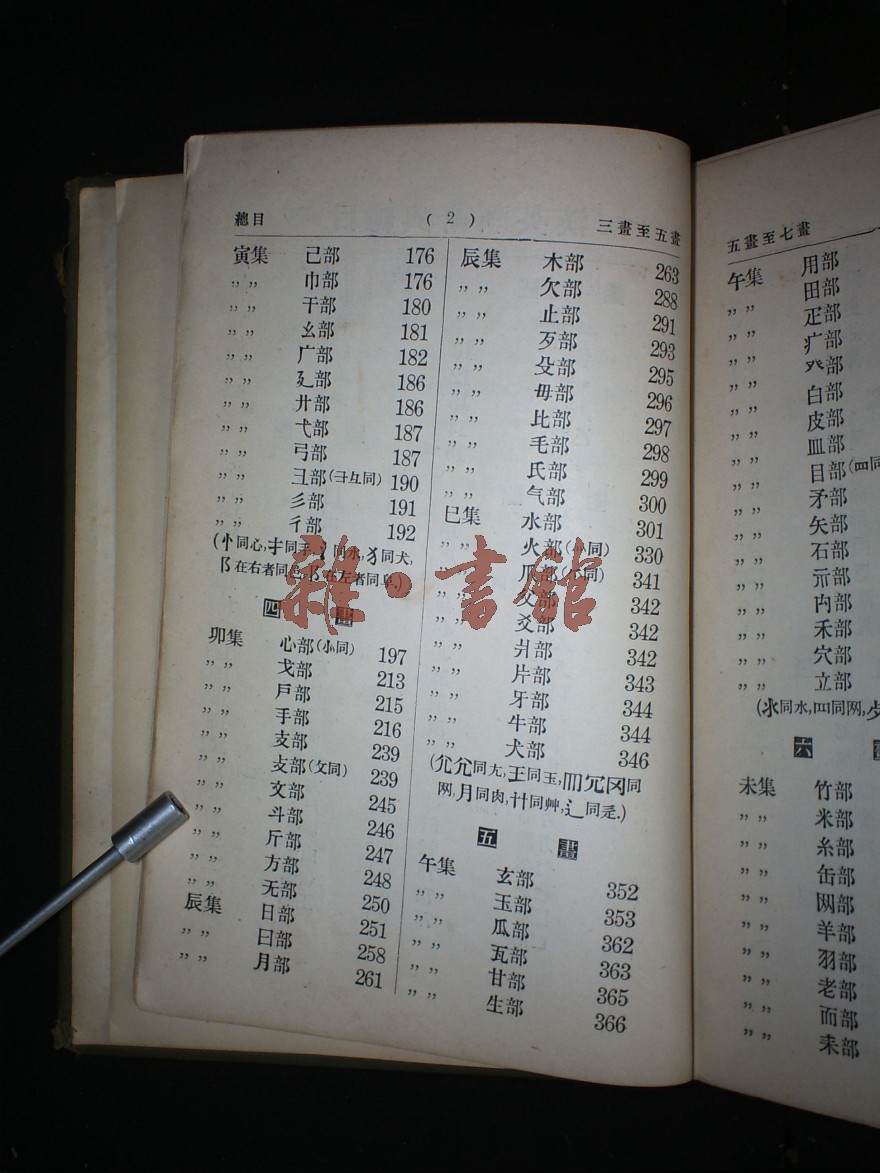 總目 (2) 三畫至五畫
寅集 己部 176
〃〃 巾部 176
〃〃 干部 180
〃〃 幺部 181
〃〃 广部 182
〃〃 廴部 186
〃〃 廾部 186
〃〃 弋部 187
〃〃 弓部 187
〃〃 彐部(彐彑同) 190
〃〃 彡部 191
〃〃 彳部 192
(忄同心,扌同手,氵同水,犭同犬,
阝在右者同邑,阝在左者同阜.)
四畫
卯集 心部(㣺同) 197
〃〃 戈部 213
〃〃 戶部 215
〃〃 手部 216
〃〃 支部 239
〃〃 攴部(攵同) 239
〃〃 文部 245
〃〃 斗部 246
〃〃 斤部 247
〃〃 方部 248
〃〃 无部 250
辰集 日部 251
〃〃 曰部 258
〃〃 月部 261
辰集 木部 263
〃〃 欠部 288
〃〃 止部 291
〃〃 歹部 293
〃〃 殳部 295
〃〃 毋部 296
〃〃 比部 297
〃〃 毛部 298
〃〃 氏部 299
〃〃 气部 300
巳集 水部 301
〃〃 火部(灬同) 330
〃〃 爪部(爫同) 341
〃〃 父部 342
〃〃 爻部 342
〃〃 爿部 342
〃〃 片部 343
〃〃 牙部 344
〃〃 牛部 344
〃〃 犬部 346
(尣尢同尢,王同玉,罒冗冈同
网,月同肉,艹同艸,辶同辵.)
五畫
午集 玄部 352
〃〃 玉部 353
〃〃 瓜部 362
〃〃 瓦部 363
〃〃 甘部 365
〃〃 生部 366
五畫至七畫
午集 用部
〃〃 田部
〃〃 疋部
〃〃 疒部
〃〃 癶部
〃〃 白部
〃〃 皮部
〃〃 皿部
〃〃 目部(罒同
〃〃 矛部
〃〃 矢部
〃〃 石部
〃〃 示部
〃〃 禸部
〃〃 禾部
〃〃 穴部
〃〃 立部
(氺同水,罒同网,
六畫
未集 竹部
〃〃 米部
〃〃 糸部
〃〃 缶部
〃〃 网部
〃〃 羊部
〃〃 羽部
〃〃 老部
〃〃 而部
〃〃 耒部
雜·書館